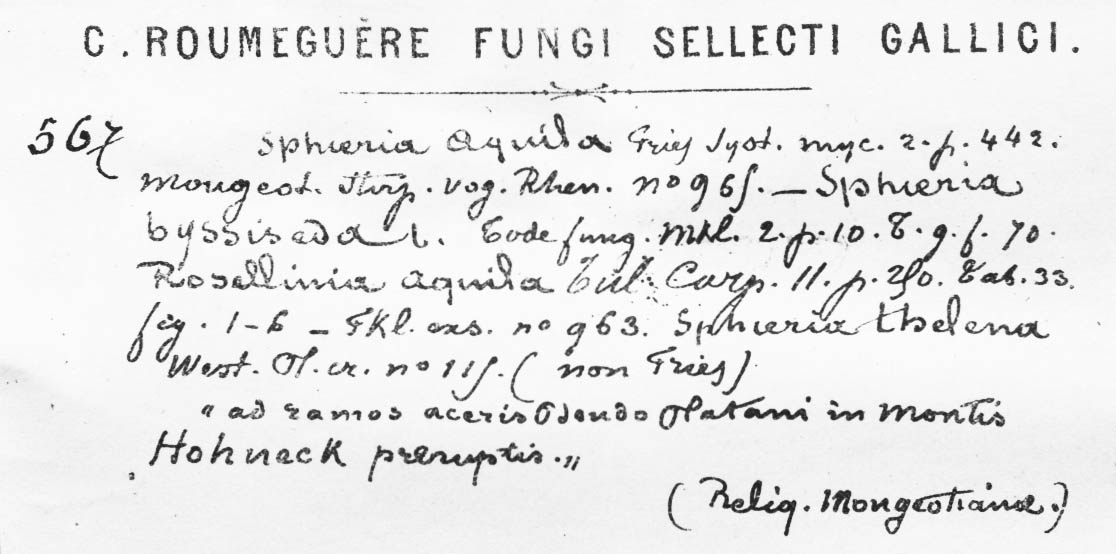 C. ROUMEGUÈRE FUNGI SELLECTI GALLICI.
567 Sphæria Aquila Fries Syst. myc. 2. p. 442.
Mougeot. Stirp. vog. Rhen. nº 965. — Sphæria
byssiseda b. Tode fung. Mkl. 2. p. 10. T. 9. f. 70.
Rosellinia aquila Tul. Carp. 11. p. 250. Tab. 33.
fig. 1-6 — Fkl. exs. nº 963. Sphæria thelena
West. Pl. cr. nº 115. ( non Fries)
" ad ramos aceris Pseudo Platani in Montis
Hohneck preruptis. "
( Reliq. Mougeotiana.)